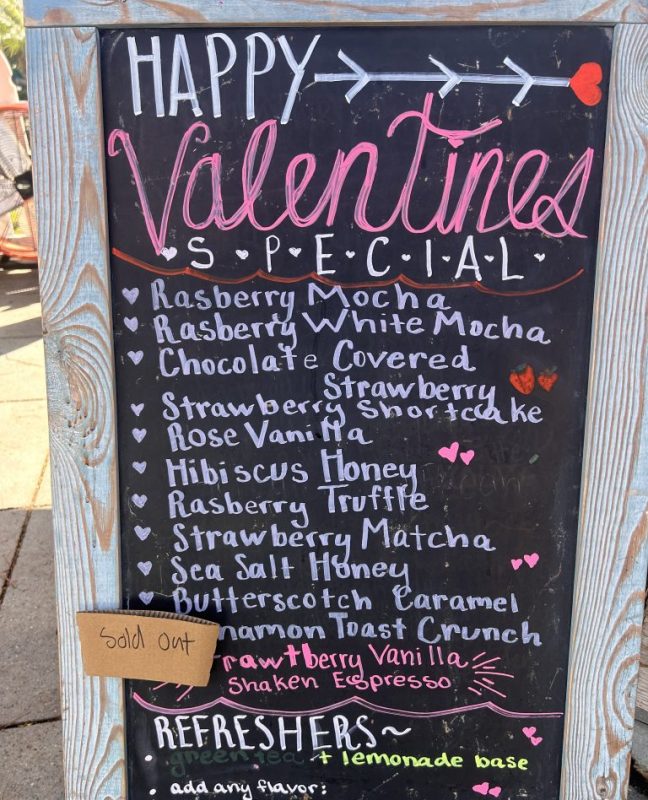 HAPPY
Valentines
S P E C I A L
Rasberry Mocha
Rasberry White Mocha
Chocolate Covered
Strawberry
Strawberry Shortcake
Rose Vanilla
Hibiscus Honey
Rasberry Truffle
Strawberry Matcha
Sea Salt Honey
Butterscotch Caramel
Sold Out
nnamon Toast Crunch
rawtberry Vanilla
Shaken Espresso
REFRESHERS~
• green tea + lemonade base
• add any flavor: